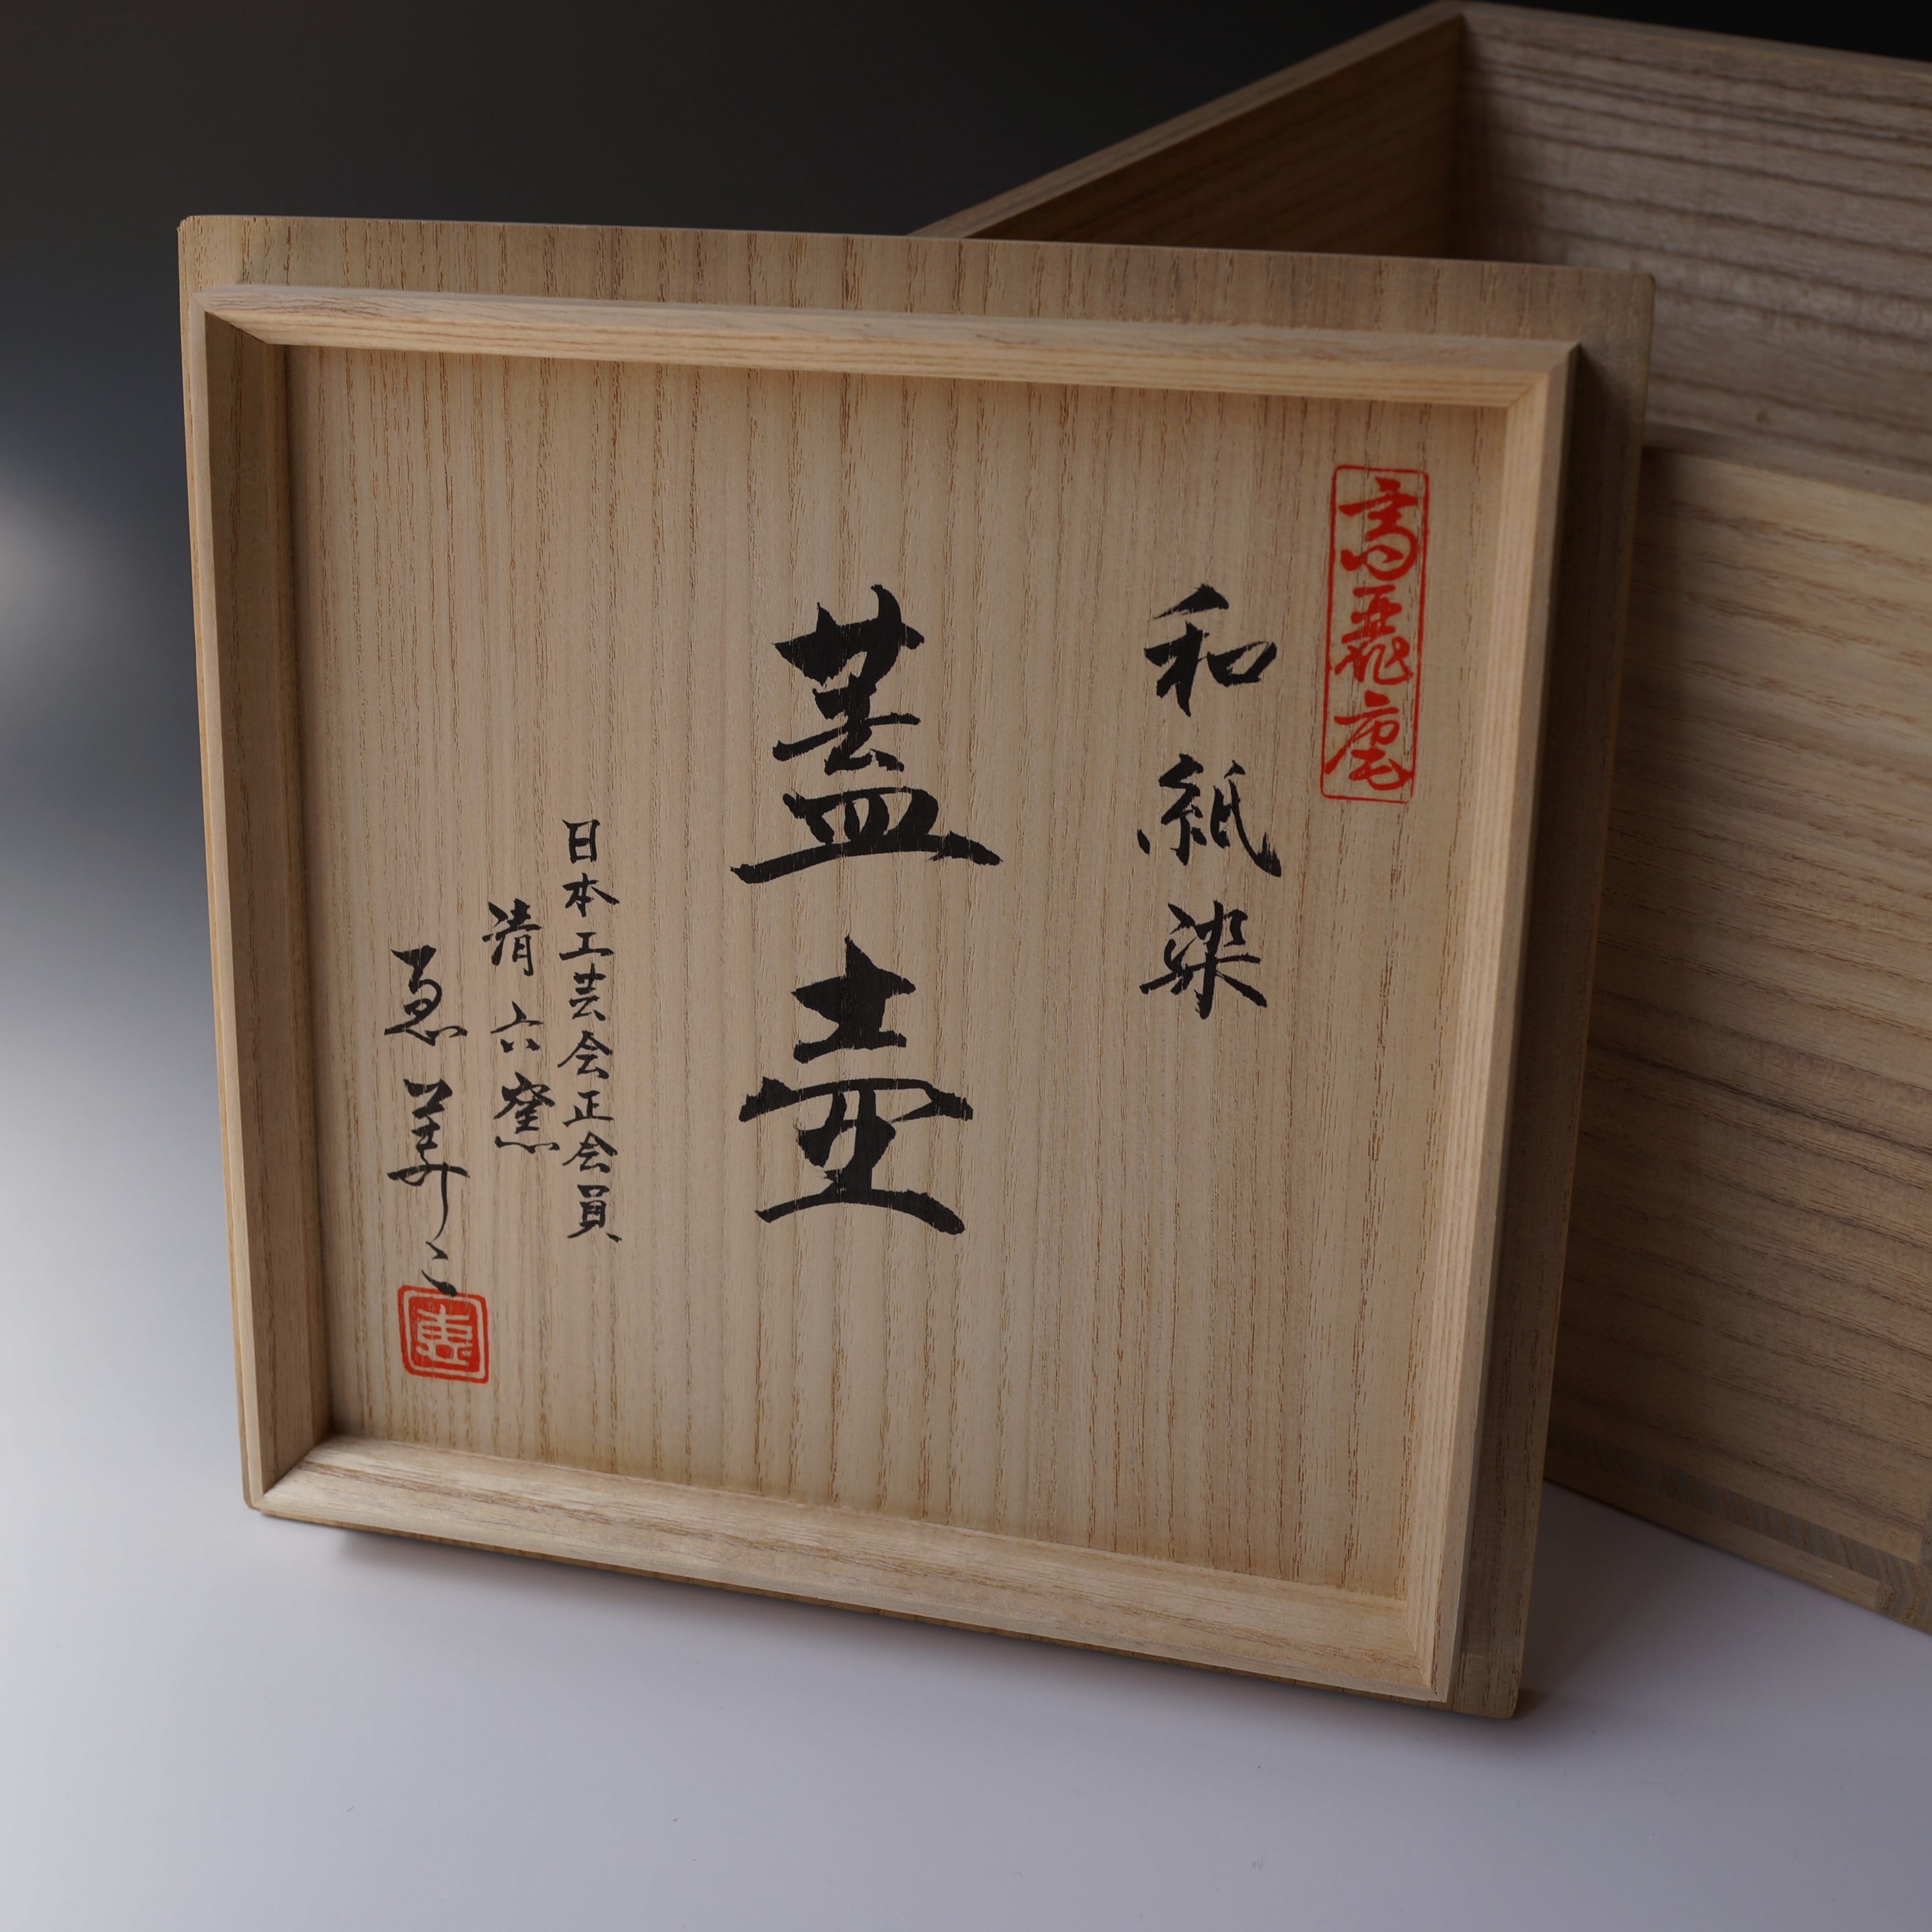 高麗庵
和紙染
蓋壺
日本工芸会正会員
清六窯
恵美こ
恵